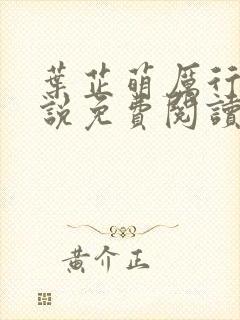 葉芷萌厲行
說免費閱讀
黃介正